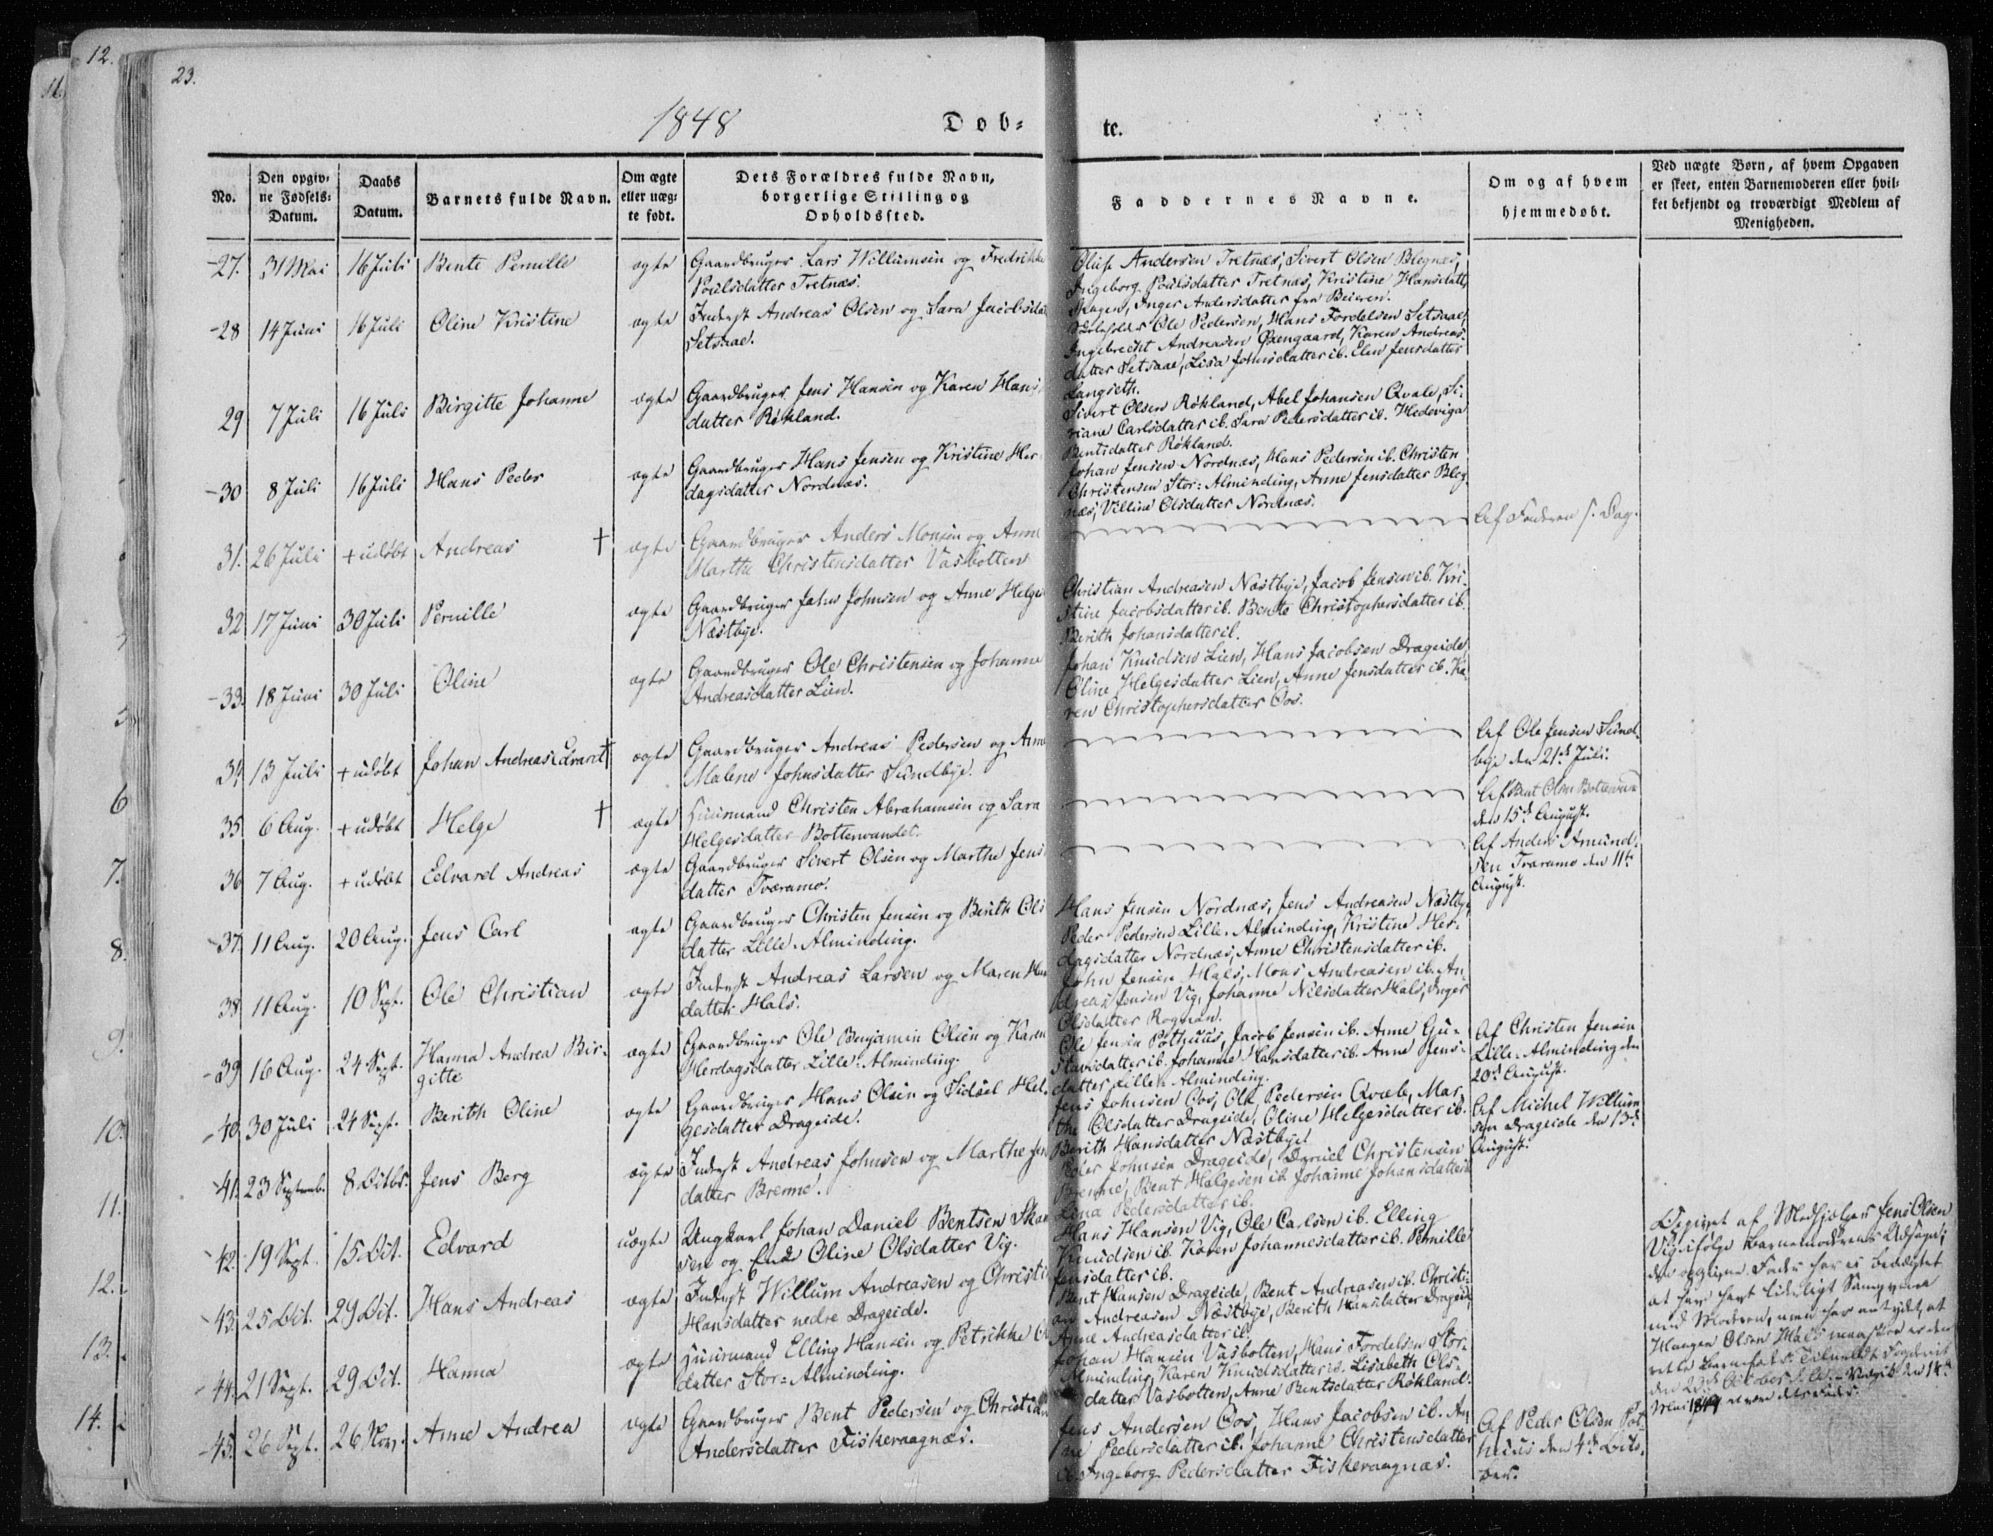 12.
11.
23.
1848
Døb-
te.
No.
Den opgiv-
ne Fødsels-
Datum.
Daabs
Datum.
Barnets fulde Navn.
Om ægte
eller uæg-
te født.
Dets Forældres fulde Navn,
borgerlige Stilling og
Opholdssted.
Faddernes Navne.
Om og af hvem
hjemmedøbt.
Ved uægte Børn, af hvem Opgaven
er skeet, enten Barnemoderen eller hvil-
ket bekjendt og troværdigt Medlem af
Menigheden.
27. 31 Mai 16 Juli Bente Pernille ægte Gaardbruger Lars Willumsen og Fredrikke
Poulsdatter Tretnæs.
Andersen Tretnæs, Sivert Olsen Blegnæs,
Ingeborg Poulsdatter Tretnæs, Kristine Hansdatt,
Skagen, Inger Andersdatter fra Beieren.
28 14 Juni 16 Juli Oline Kristine ægte Inderst Andreas Olsen og Sara Jacobsdat
Setsaae.
Ole Pedersen, Hans Fordelsen Setsaae,
Ingebrecht Andreasen Øxengaard, Karen Andreas-
datter Setsaae, Lisa Johnsdatter ib. Elen Jensdatter
Langseth.
29 7 Juli 16 Juli Birgitte Johanne ægte Gaardbruger Jens Hansen og Karen Hans
datter Røkland.
Sivert Olsen Røkland, Abel Johansen Qvale, Si-
riane Carlsdatter ib. Sara Pedersdatter ib. Hedeviga
Bentsdatter Røkland.
30 8 Juli 16 Juli Hans Peder ægte Gaardbruger Hans Jensen og Kristine Her-
dagsdatter Nordnæs.
Johan Jensen Nordnæs, Hans Pedersen ib. Christen
Christensen Stor-Alminding, Anne Jensdatter Bleg
næs, Olsdatter Nordnæs.
31. 26 Juli + udøbt Andreas † ægte Gaardbruger Anders Monsen og Anne
Marthe Christensdatter Vasbotten
Af Faderen s. Dag.
32 17 Juni 30 Juli Pernille ægte Gaardbruger Johnsen og Anne Helges
Næstbye.
Christian Andreasen Næstbye, Jacob Jensen ib. Kri-
stine Jacobsdatter ib. Bente Christophersdatter ib.
Berith Johansdatter ib.
33. 18 Juni 30 Juli Oline ægte Gaardbruger Ole Christensen og Johanne
Andreasdatter Lien.
Johan Knudsen Lien, Hans Jacobsen Drageide,
Oline Helgesdatter Lien, Anne Jensdatter ib. Ka-
ren Christophersdatter Oos.
34 13 Juli + udøbt Johan Andreas Edvard † ægte Gaardbruger Andreas Pedersen og Anne
Malene Johnsdatter Sundbye.
Af Ole Jensen Sund-
bye den 21de Juli.
35. 6 Aug. + udøbt Helge † ægte Huusmand Christen Abrahamsen og Sara
Helgesdatter Bottenvandet.
Af Bent Olsen
den 15de August.
36 7 Aug. + udøbt Edvard Andreas ægte Gaardbruger Sivert Olsen og Marthe Jens
datter Tværamo.
Af Anders Amund-
sen Tværamo den 11te
August.
37. 11 Aug. 20 Aug. Jens Carl ægte Gaardbruger Christen Jensen og Berith Ols
datter Lille-Alminding.
Hans Jensen Nordnæs, Jens Andreasen Næstbye,
Peder Pedersen Lille-Alminding, Kristine Her-
dagsdatter Nordnæs, Anne Christensdatter ib.
38 11 Aug. 10 Sept. Ole Christian ægte Inderst Andreas Larsen og Maren Han
datter Hals.
John Jensen Hals, Mons Andreasen ib. An-
dreas Jensen Vig, Johanne Nilsdatter Hals, Inger
Olsdatter Rognan.
39 16 Aug. 24 Sept. Hanna Andrea Bir-
gitte ægte Gaardbruger Ole Benjamin Olsen og Karen
Herdagsdatter Lille-Alminding.
Ole Jensen Pothuus, Jacob Jensen ib. Anne Gu-
stavsdatter ib. Johanne Hansdatter ib. Anne Jens-
datter Lille Alminding.
Af Christen Jensen
Lille-Alminding den
20de August.
40. 30 Juli 24 Sept. Berith Oline ægte Gaardbruger Hans Olsen og Sidsel Hel-
gesdatter Drageide.
Jens Johnsen Oos, Ole Pedersen Qvale, Mar-
the Olsdatter Drageide, Oline Helgesdatter ib.
Berith Hansdatter Næstbye.
Af Michel Willum
sen Drageide den 13de
August.
41. 23 Septemb. 8 Octbr. Jens Berg ægte Inderst Andreas Johnsen og Marthe Jens
datter Bremne.
Peder Johnsen Drageide, Christensen
Bremne, Bent Helgesen ib. Johanne Johansdatter
Lina Pedersdatter ib.
42. 19 Sept. 15 Oct. Edvard uægte Ungkarl Johan Daniel Bentsen Skan
sen og Oline Olsdatter Vig.
Hans Hansen Vig, Ole Carlsen ib. Elling
Knudsen ib. Karen Johannesdatter ib. Pernille
Jensdatter ib.
Opgivet af Medhjelper Jens Olsen
Vig ifølge Barnemoderens Udsagn;
den opgivne Fader har ei benægtet
at have havt Samqvem
med Moderen, men har antydet, at
Haagen Olsen Hals maaskee er den
rette Barnefader.
den 23de October
Mai 1849
43. 25 Oct. 29 Oct. Hans Andreas ægte Inderst Willum Andreasen og Christi
Hansdatter nedre Drageide.
Bent Hansen Drageide, Bent Andreasen ib. Christi-
an Andreasen Næstbye, Berith Hansdatter Drageide,
Anne Andreasdatter ib.
44. 21 Sept. 29 Oct. Hanna ægte Huusmand Elling Hansen og Petrikke
datter Stor-Alminding.
Johan Hansen Vasbotten, Hans Fordelsen Stor-
Alminding, Karen Knudsdatter ib. Lisabeth Ols-
datter Vasbotten, Anne Bentsdatter Røkland.
45. 26 Sept. 26 Nov. Anne Andrea ægte Gaardbruger Bent Pedersen og Christi
Andersdatter Fiskevaagnæs.
Jens Andersen Oos, Hans Jacobsen ib. An-
ne Pedersdatter ib. Johanne Christensdatter
Ingeborg Pedersdatter Fiskevaagnæs.
Af Peder Olsen Pot-
huus den 4de Octo-
ber.
6
7.
8.
9.
10.
11.
12.
13.
14.